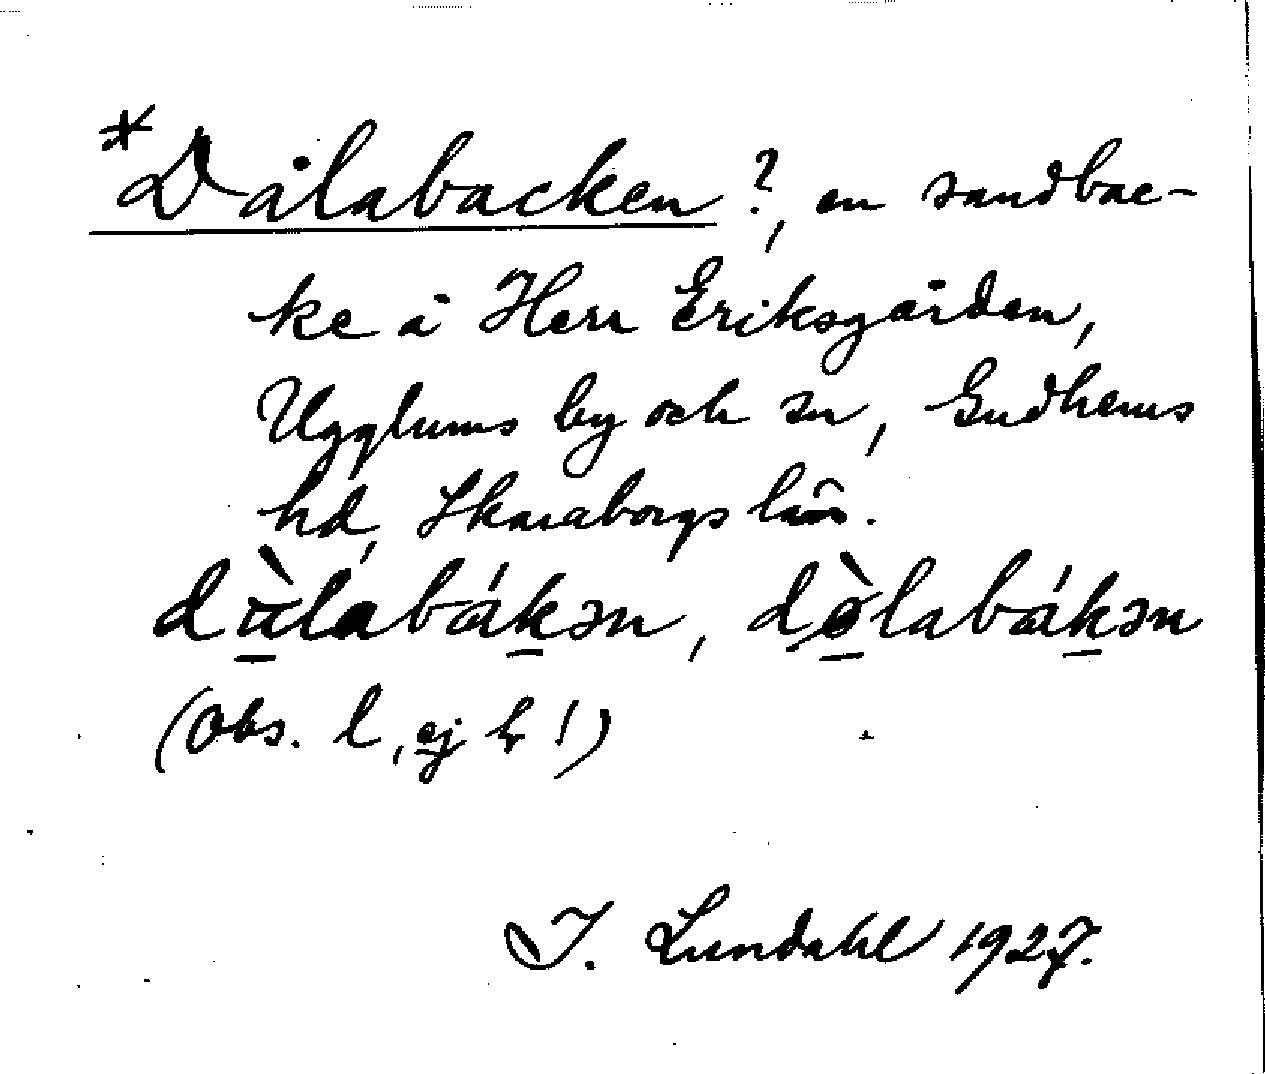 *Dålabacken ?, en sandbac-
ke å Herr Eriksgården,
Ugglums by och sn, Gudhems
hd, Skaraborgs län.
dàlabákən, dòlabákən
(Obs. l, ej !)
I. Lundahl 1927.